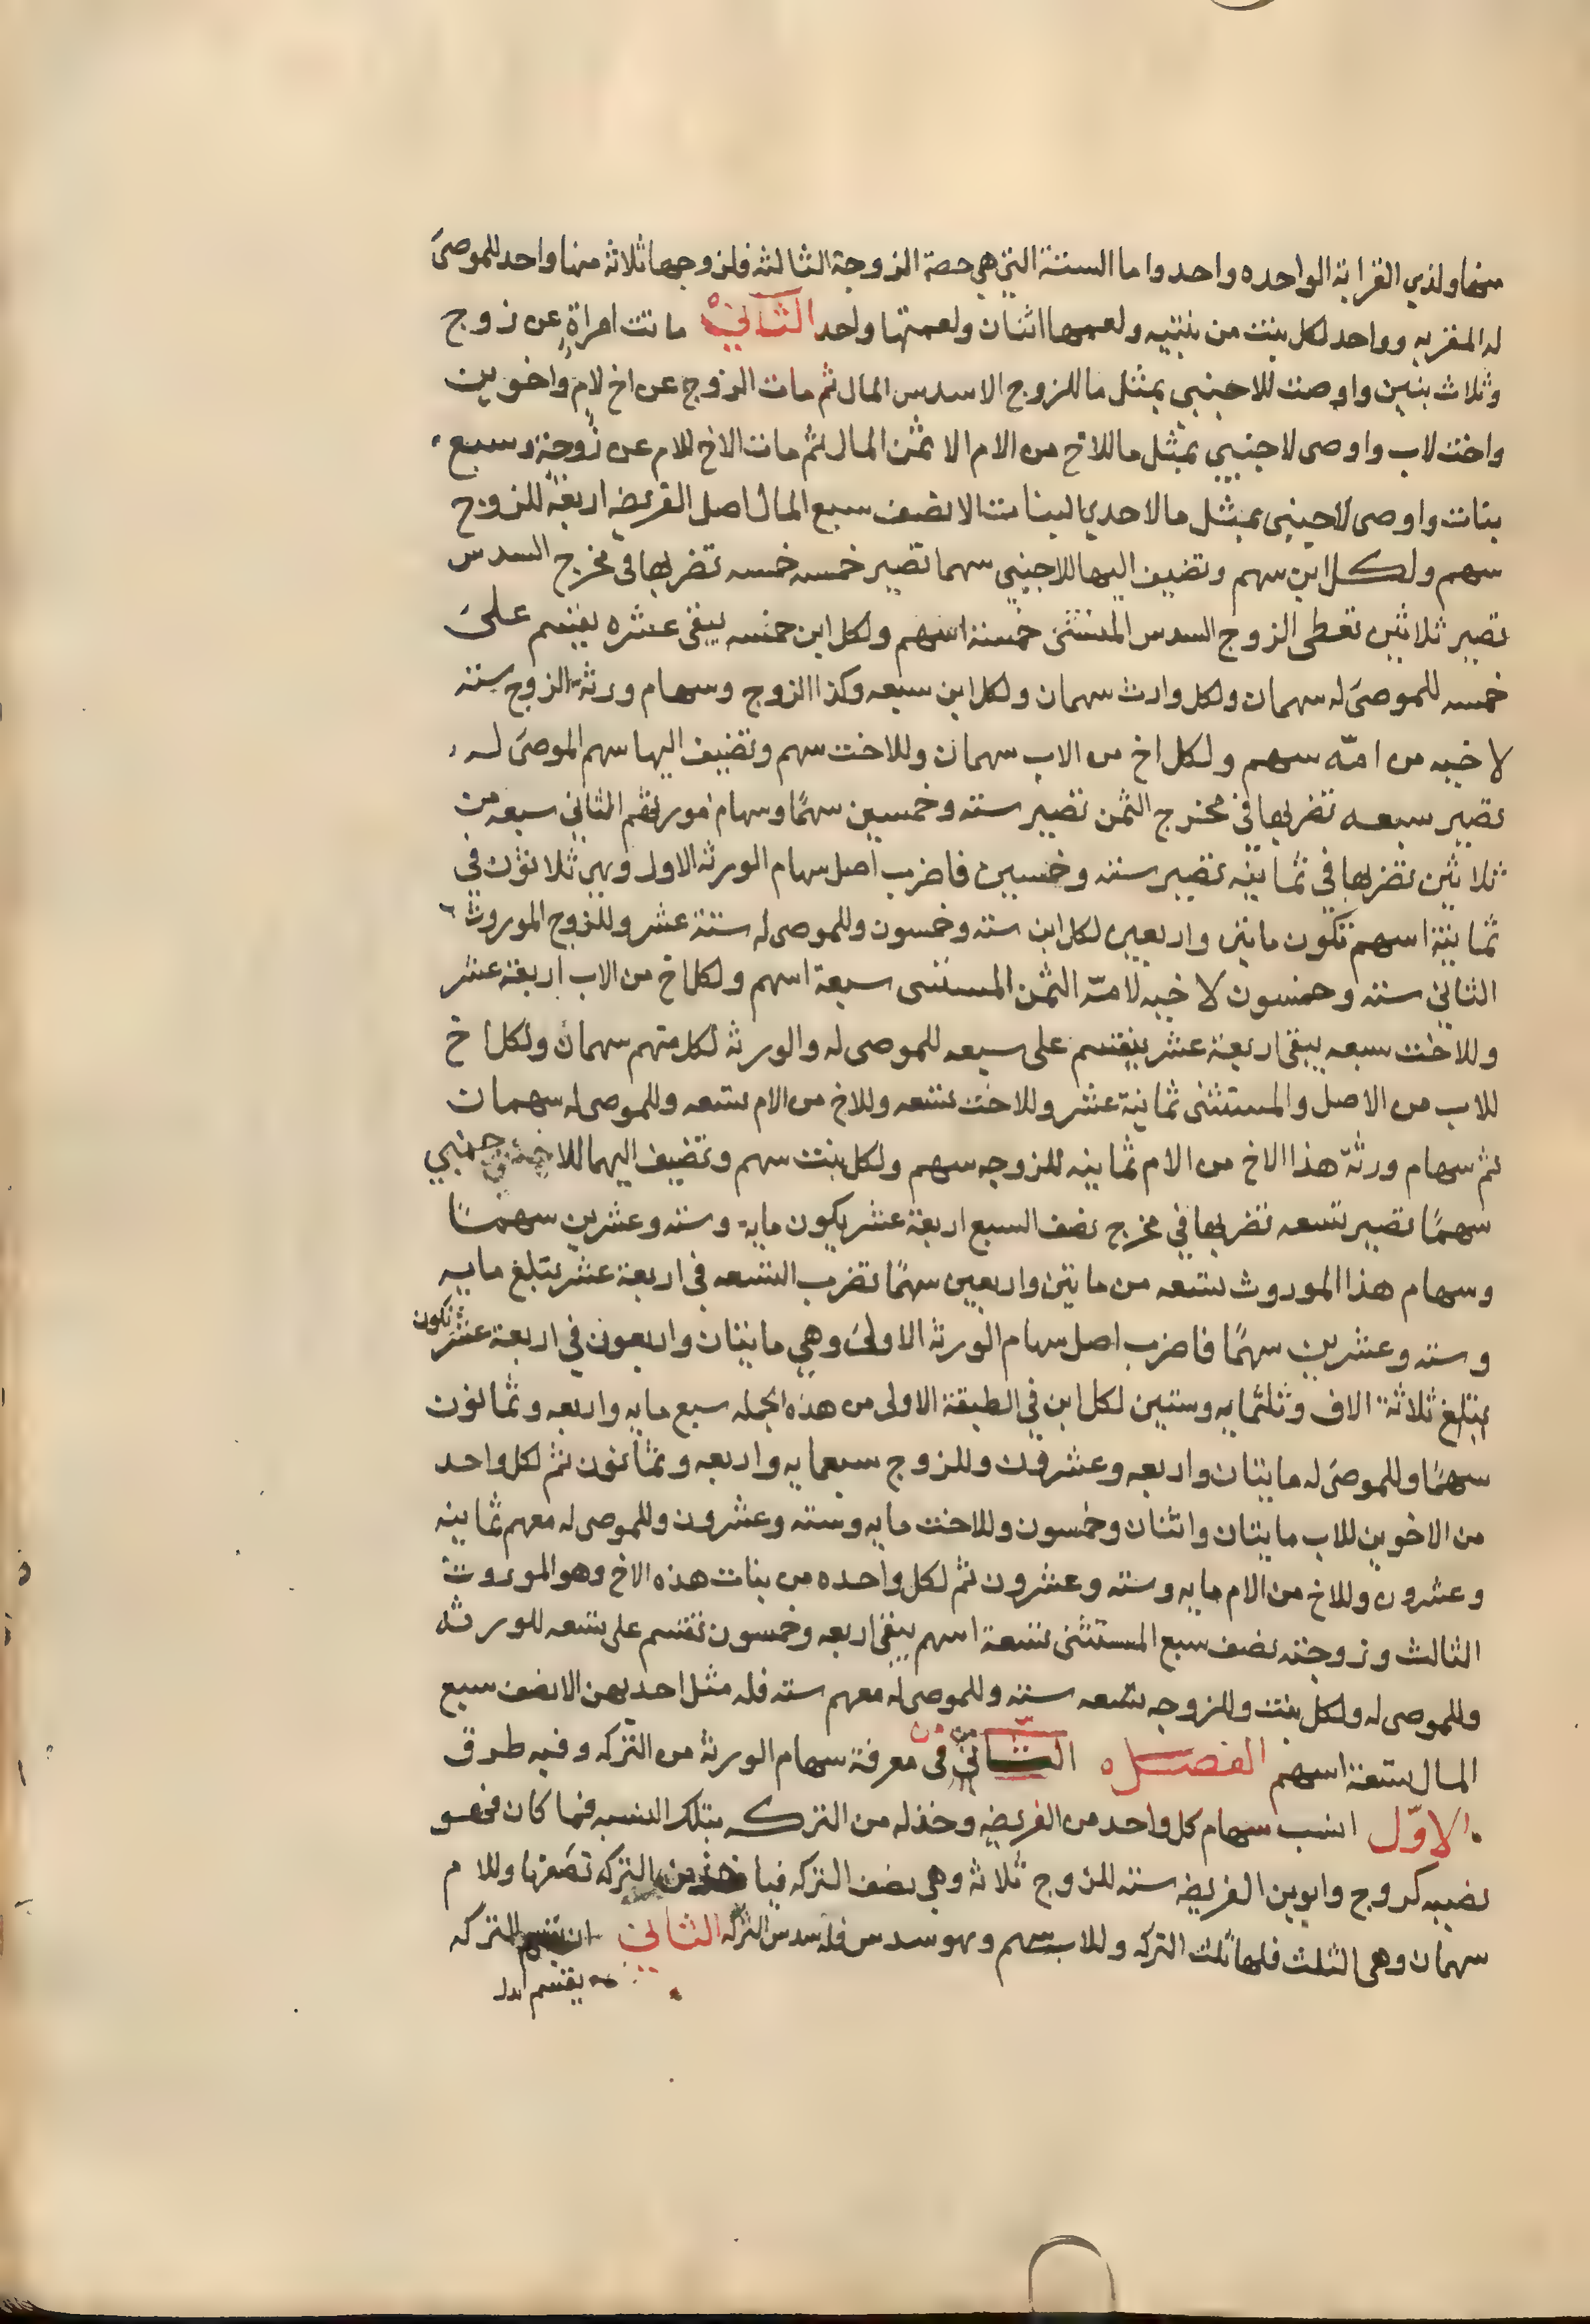 منها ولذي القرابة الواحده واحد واما الستة التي هي حصة الزوجة الثالثه فلزوجها ثلاثة منها واحد للموصى
له المقر به وواحد لكل بنت من بنتيه ولعمها اثنان ولعمتها واحد الثاني ماتت امراة عن زوج
وثلاث بنين واوصت للاجنبي بمثل ما للزوج الا سدس المال ثم مات الزوج عن اخ لام واخوين
واخت لاب واوصى لاجنبي بمثل ما للاخ من الام الا ثمن المال ثم مات الاخ للام عن زوجة وسبع
بنات واوصى لاجنبي بمثل ما لاحدي البنات الا نصف سبع المال اصل الفريضه اربعة للزوج
سهم ولكل ابن سهم وتضيف اليها للاجنبي سهما تصير خمسه خمسه تضربها في مخرج السدس
تصير ثلاثين تعطى الزوج السدس المستثنى خمسة اسهم ولكل ابن خمسه يبقى عشره يقسم على
خمسه للموصى له سهمان ولكل وارث سهمان ولكل ابن سبعه وكذا الزوج وسهام ورثة الزوج سته
لاخيه من امّه سهم ولكل اخ من الاب سهمان وللاخت سهم وتضيف اليها سهم الموصى له
تصير سبعه تضربها في مخرج الثمن تصير سته وخمسين سهمًا وسهام مورثهم الثاني سبعه من
ثلاثين تضربها في ثمانيه تصير سته وخمسين فاضرب اصل سهام الورثه الاول وهي ثلاثون في
ثمانية اسهم تكون مايتين واربعين لكل ابن سته وخمسون وللموصى له ستة عشر وللزوج الموروث
الثاني سته وخمسون لاخيه لامّه الثمن المستثنى سبعة اسهم ولكل اخ من الاب اربعة عشر
وللاخت سبعه يبقى اربعة عشر ينقسم على سبعه للموصى له والورثه لكل منهم سهمان ولكل اخ
للاب من الاصل والمستثنى ثمانية عشر وللاخت تسعه وللاخ من الام تسعه وللموصى له سهمان
ثم سهام ورثة هذا الاخ من الام ثمانيه للزوجه سهم ولكل بنت سهم وتضيف اليها للاجنبي
سهمًا تصير تسعه تضربها في مخرج نصف السبع اربعة عشر يكون مايه وسته وعشرين سهمًا
وسهام هذا الموروث تسعه من مايتين واربعين سهمًا تضرب التسعه في اربعة عشر تبلغ مايه
وسته وعشرين سهمًا فاضرب اصل سهام الورثة الاولى وهي مايتان واربعون في اربعة عشر تكون
تبلغ ثلاثة الاف وثلثمايه وستين لكل ابن في الطبقة الاولى من هذه الجمله سبع مايه واربعه وثمانون
سهمًا وللموصى له مايتان واربعه وعشرون وللزوج سبعمايه واربعه وثمانون ثم لكل واحد
من الاخوين للاب مايتان واثنان وخمسون وللاخت مايه وسته وعشرون وللموصى له معهم ثمانيه
وعشرون وللاخ من الام مايه وسته وعشرون ثم لكل واحده من بنات هذه الاخ وهو الموروث
الثالث وزوجته نصف سبع المستثنى تسعة اسهم يبقى اربعه وخمسون تقسم على تسعه للورثه
وللموصى له ولكل بنت وللزوجه تسعه سته وللموصى له معهم سته فله مثل احديهن الا نصف سبع
المال تسعة اسهم الفصل الثاني في معرفة سهام الورثة من التركه وفيه طرق
الاوّل انسب سهام كل واحد من الفريضه وخذ له من التركه بتلك النسبه فما كان فهو
نصيبه كزوج وابوين الفريضه سته للزوج ثلاثة وهي نصف التركه فياخذ من التركه نصفها وللام
سهمان وهي الثلث فلها ثلث التركه وللاب سهم وهو سدس فله سدس التركه الثاني ان تقسم التركه